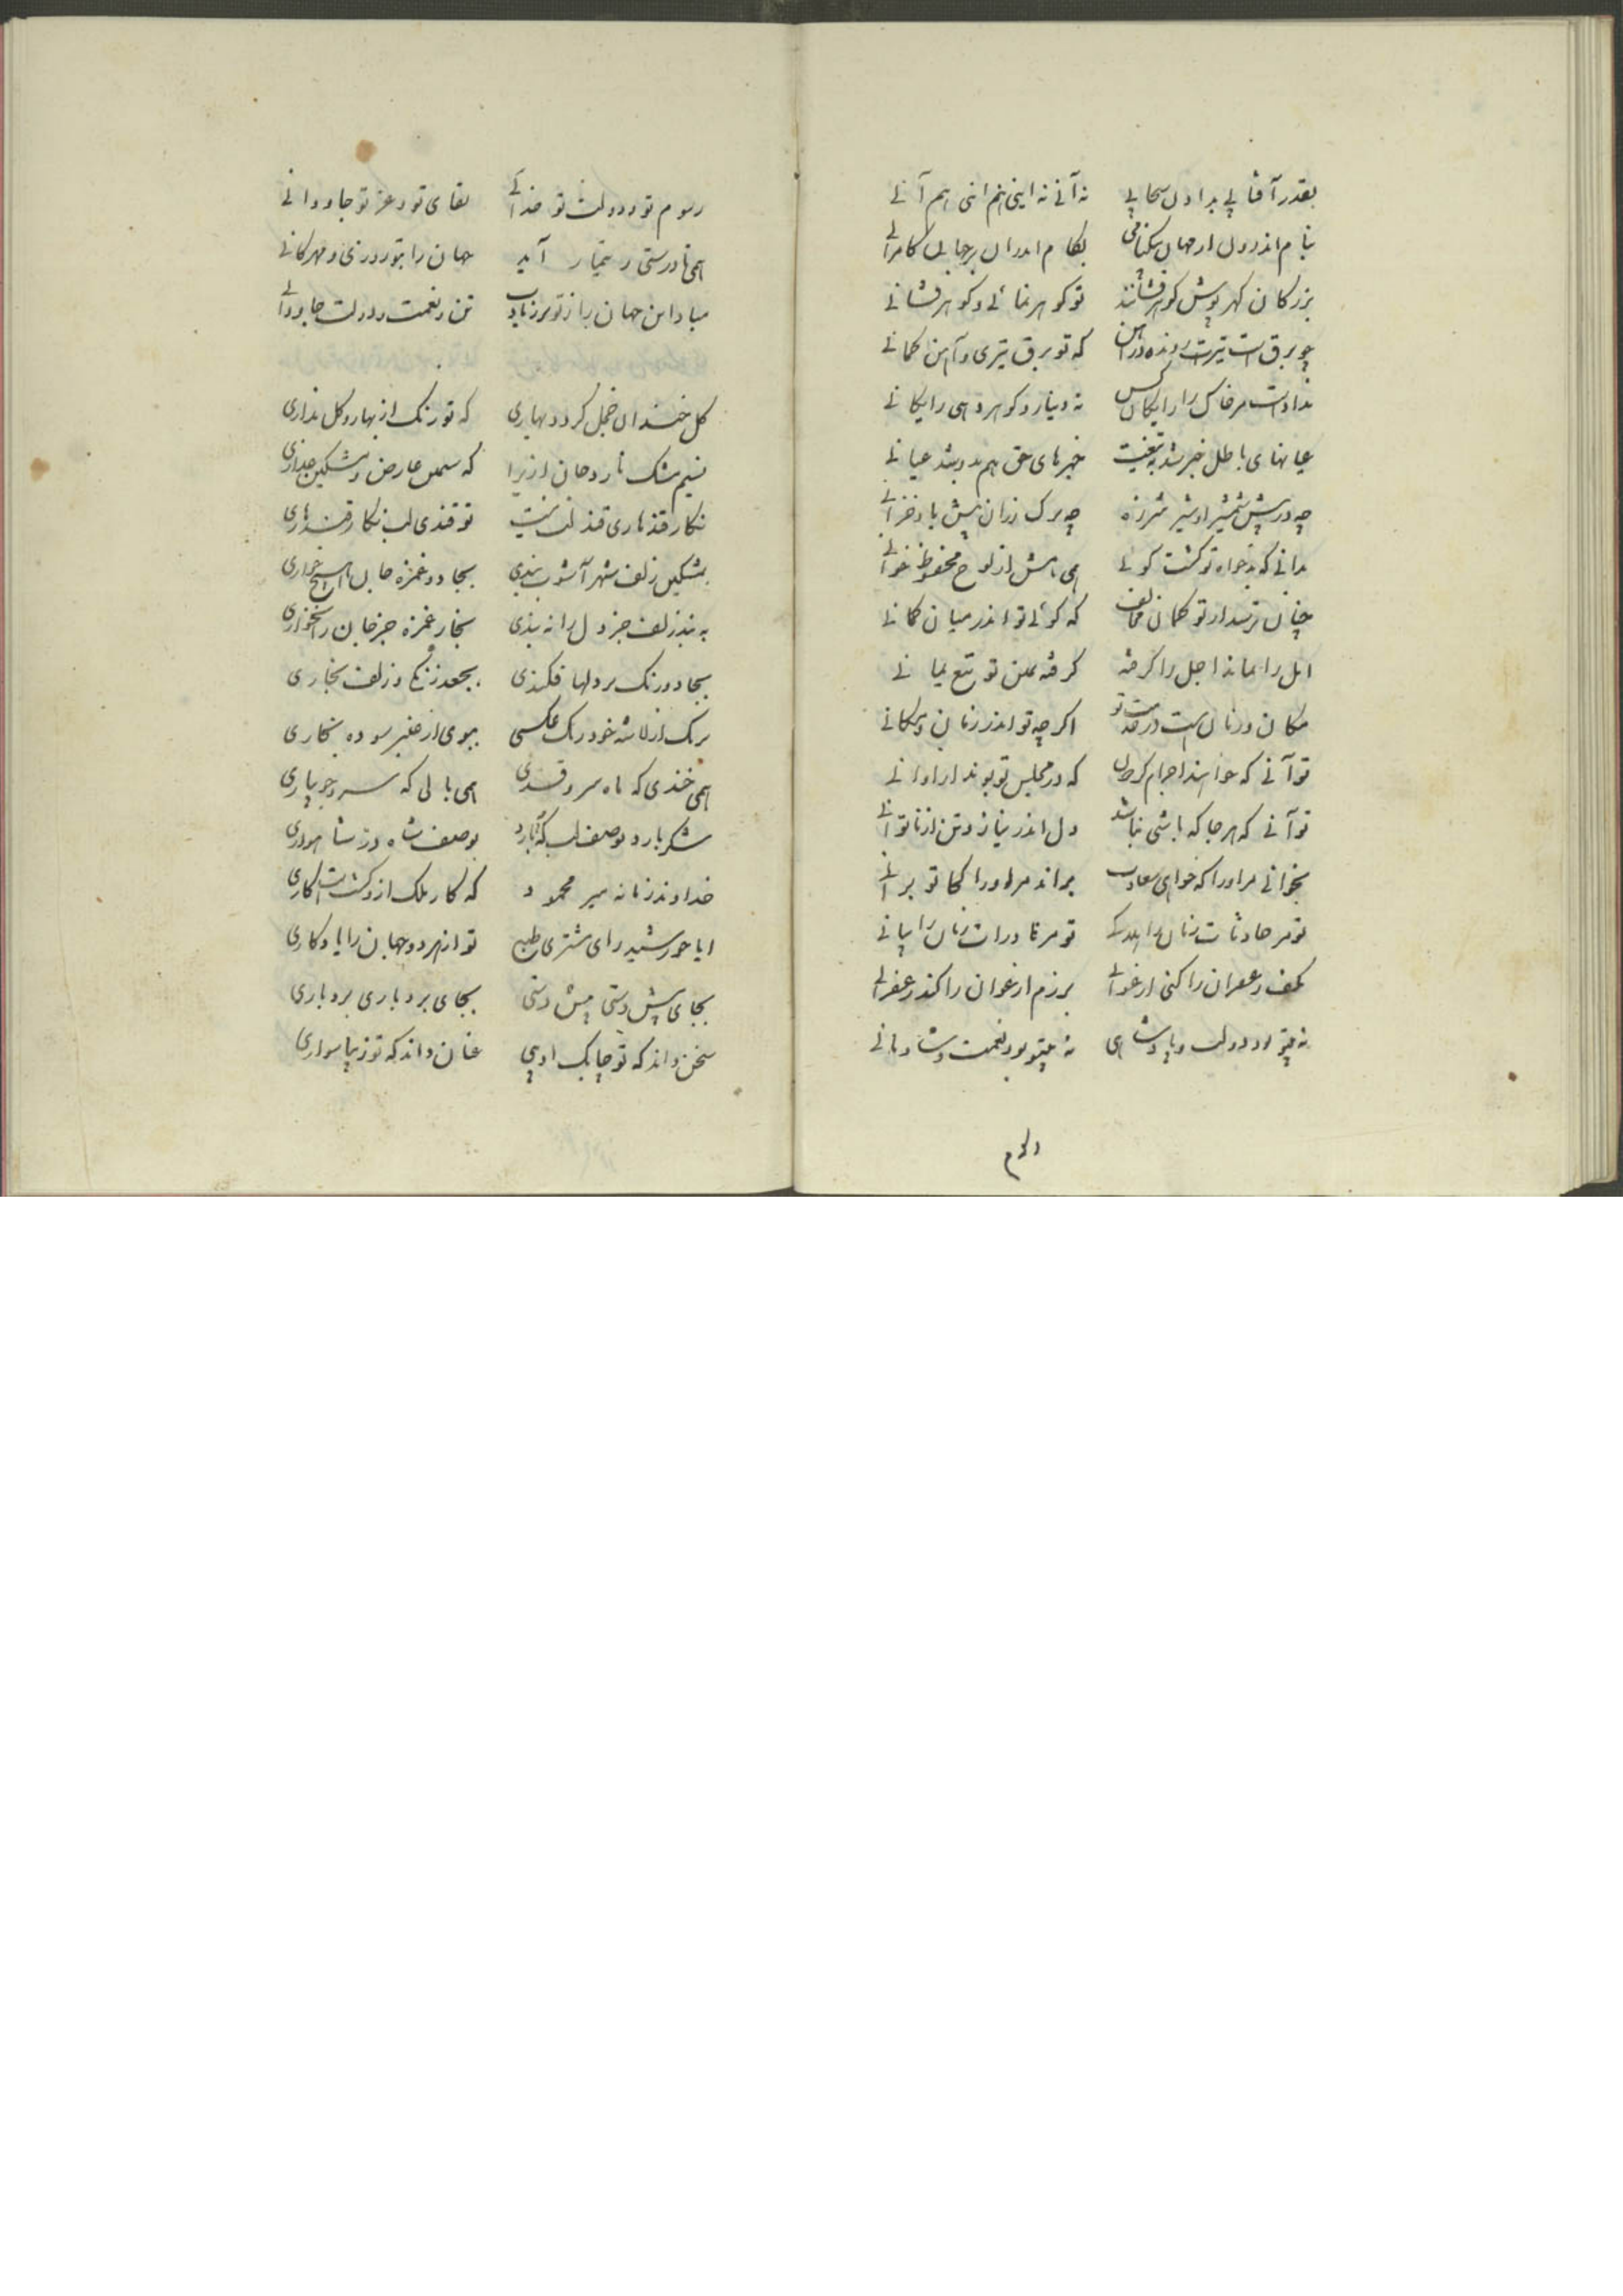 بقدر آفتابی بدادل سحابی نه آنی نه اینی هم اینی هم آنی
بنام اندرون از جهان نیکنامی بکام اندرون بر جهان کامرانی
بزرکان کهرپوش کوهرفشانند تو کوهر نمائی و کوهر فشانی
چو برق است تیرت رونده در آهن که تو برق تیری و آهن کمانی
ندادست مر خاک را رایکان کس نه دینار و کوهر دهی رایکانی
عیانهای باطل خبر شد به تیغت خبرهای حق هم بدو شد عیانی
چه در پیش شمشیر او شیر شرزه چه برک رزان پیش باد خزانی
بدانی که بدخواه تو کشت کوئی همی نامش از لوح محفوظ خوانی
چنان ترسد از تو کمان مخالف که کوئی تو اندر میان کمانی
امل را بماند اجل را کرفته کرفته بمن تو تیغ یمانی
مکان و زمان هست در خدمت تو اکرچه تو اندر زمان و مکانی
تو آنی که خواهند اجرام کردون که در مجلس تو بوند از اوانی
تو آنی که هرجا که باشی نباشد دل اندر نیاز و تن از ناتوانی
بخوانی مر او را که خواهی سعادت براند مر او را کجا تو برانی
تو مر حادثات زمان را هلاکی تو مر نادرات زمان را بیانی
بکف زعفران را کنی ارغوانی برزم ارغوان را کند زعفرانی
نه بیتو بود دولت و پادشاهی نه بیتو بود نعمت و شادمانی
رسوم تو و دولت تو خدائی بقای تو و عز تو جاودانی
همی تا درستی ز تیمار آید جهان را بتو روزی و مهرکانی
مبادا این جهان را ز تو برزیادت تن و نعمت و دولت جاودانی
کل خندان خجل کردد بهاری که تو رنک از بهار و کل نداری
نسیم مشک تا روحانی ازیرا که سیمین عارض و مشکین عذاری
نکار قندهاری قند لب نیست تو قندی لب نکار قندهاری
بمشکین زلف شهر آشوب بندی بجادو غمزه جان آهیخ خاری
به بند زلف جز دل را نه بندی بخار غمزه جز جان را نخاری
بجادو رنک بر دلها فکندی بجعد زنکی و زلف بخاری
برنک از لاله خود رنک عکسی ببوی از عنبر سوده بخاری
همی خندی که ماه سمرقندی همی بالی که سرو جویباری
شکر بارد بوصف لب که بارد بوصف شاه در شاهواری
خداوند زمانه میر محمود که کار ملک ازو کشتست کاری
ایا خورشید رای مشتری طبع تو از هر دو جهان را یادکاری
بجای پیش دستی پیش دستی بجای بردباری بردباری
سخن داند که تو چابک ادیبی عنان داند که تو زیبا سواری